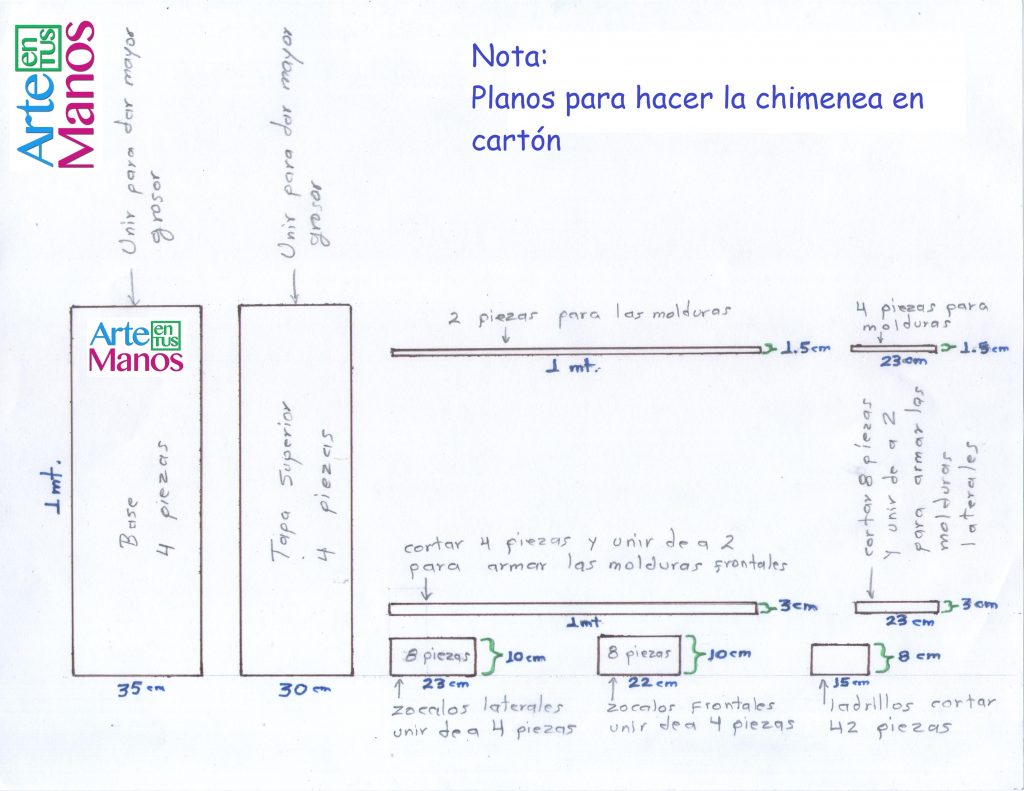 Arte en TUS
Manos
Unir para dar mayor
grosor
Unir para dar mayor
grosor
Nota:
Planos para hacer la chimenea en
cartón
Arte en TUS
Manos
1 mt.
Base
4 piezas
35 cm
Tapa Superior
4 piezas
30 cm
2 piezas para las molduras
1.5 cm
1 mt.
4 piezas para
molduras
1.5 cm
23 cm
cortar 4 piezas y unir de a 2
para armar las molduras frontales
3 cm
1 mt
cortar 8 piezas
y unir de a 2
para armar las
molduras
laterales
3 cm
23 cm
8 piezas
10 cm
23 cm
zocalos laterales
unir de a 4 piezas
8 piezas
10 cm
22 cm
zocalos frontales
unir de a 4 piezas
8 cm
15 cm
ladrillos cortar
42 piezas